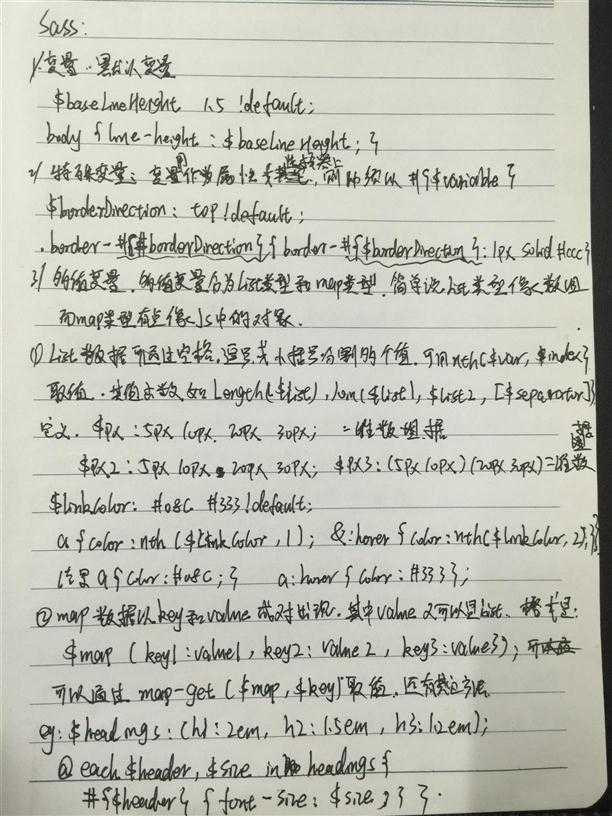 Sass:
1) 变量. 默认变量
$baseLineHeight 1.5 !default;
body { line-height : $baseLineHeight; }
2) 特殊变量: 变量用作为属性或类型选择器上, 则必须以 #{$variable}
$borderDirection: top !default;
.border-#{#borderDirection} { border-#{$borderDirection}: 1px solid #ccc}
3) 多值变量. 多值变量分为List类型和map类型. 简单说 List类型像数组
而map类型有点像Js中的对象.
① List数据可通过空格, 逗号或小括号分割多个值, 可用nth($var, $index}
取值. 其他函数 如 Length($list), Join($list1, $list2, [$separator])
定义. $px : 5px 10px 20px 30px; 一维数据
$px2 : 5px 10px 20px 30px; $px3 : (5px 10px) (20px 30px) 二维数据
$linkColor: #08C #333 !default;
a { color : nth ($linkColor, 1); &:hover { color : nth($linkColor, 2); }}
结果 a { color : #08C; } a:hover { color : #333 };
② map 数据以 key和value 成对出现. 其中value 又可以是List. 格式是:
$map (key1 : value1, key2 : value2, key3 : value3);
可以通过 map-get ($map, $key) 取值. 还有其它方法
eg: $headings : (h1 : 2em, h2 : 1.5em, h3 : 1.2em);
@ each $header, $size in headings {
#{$header} { font-size : $size ; } }.